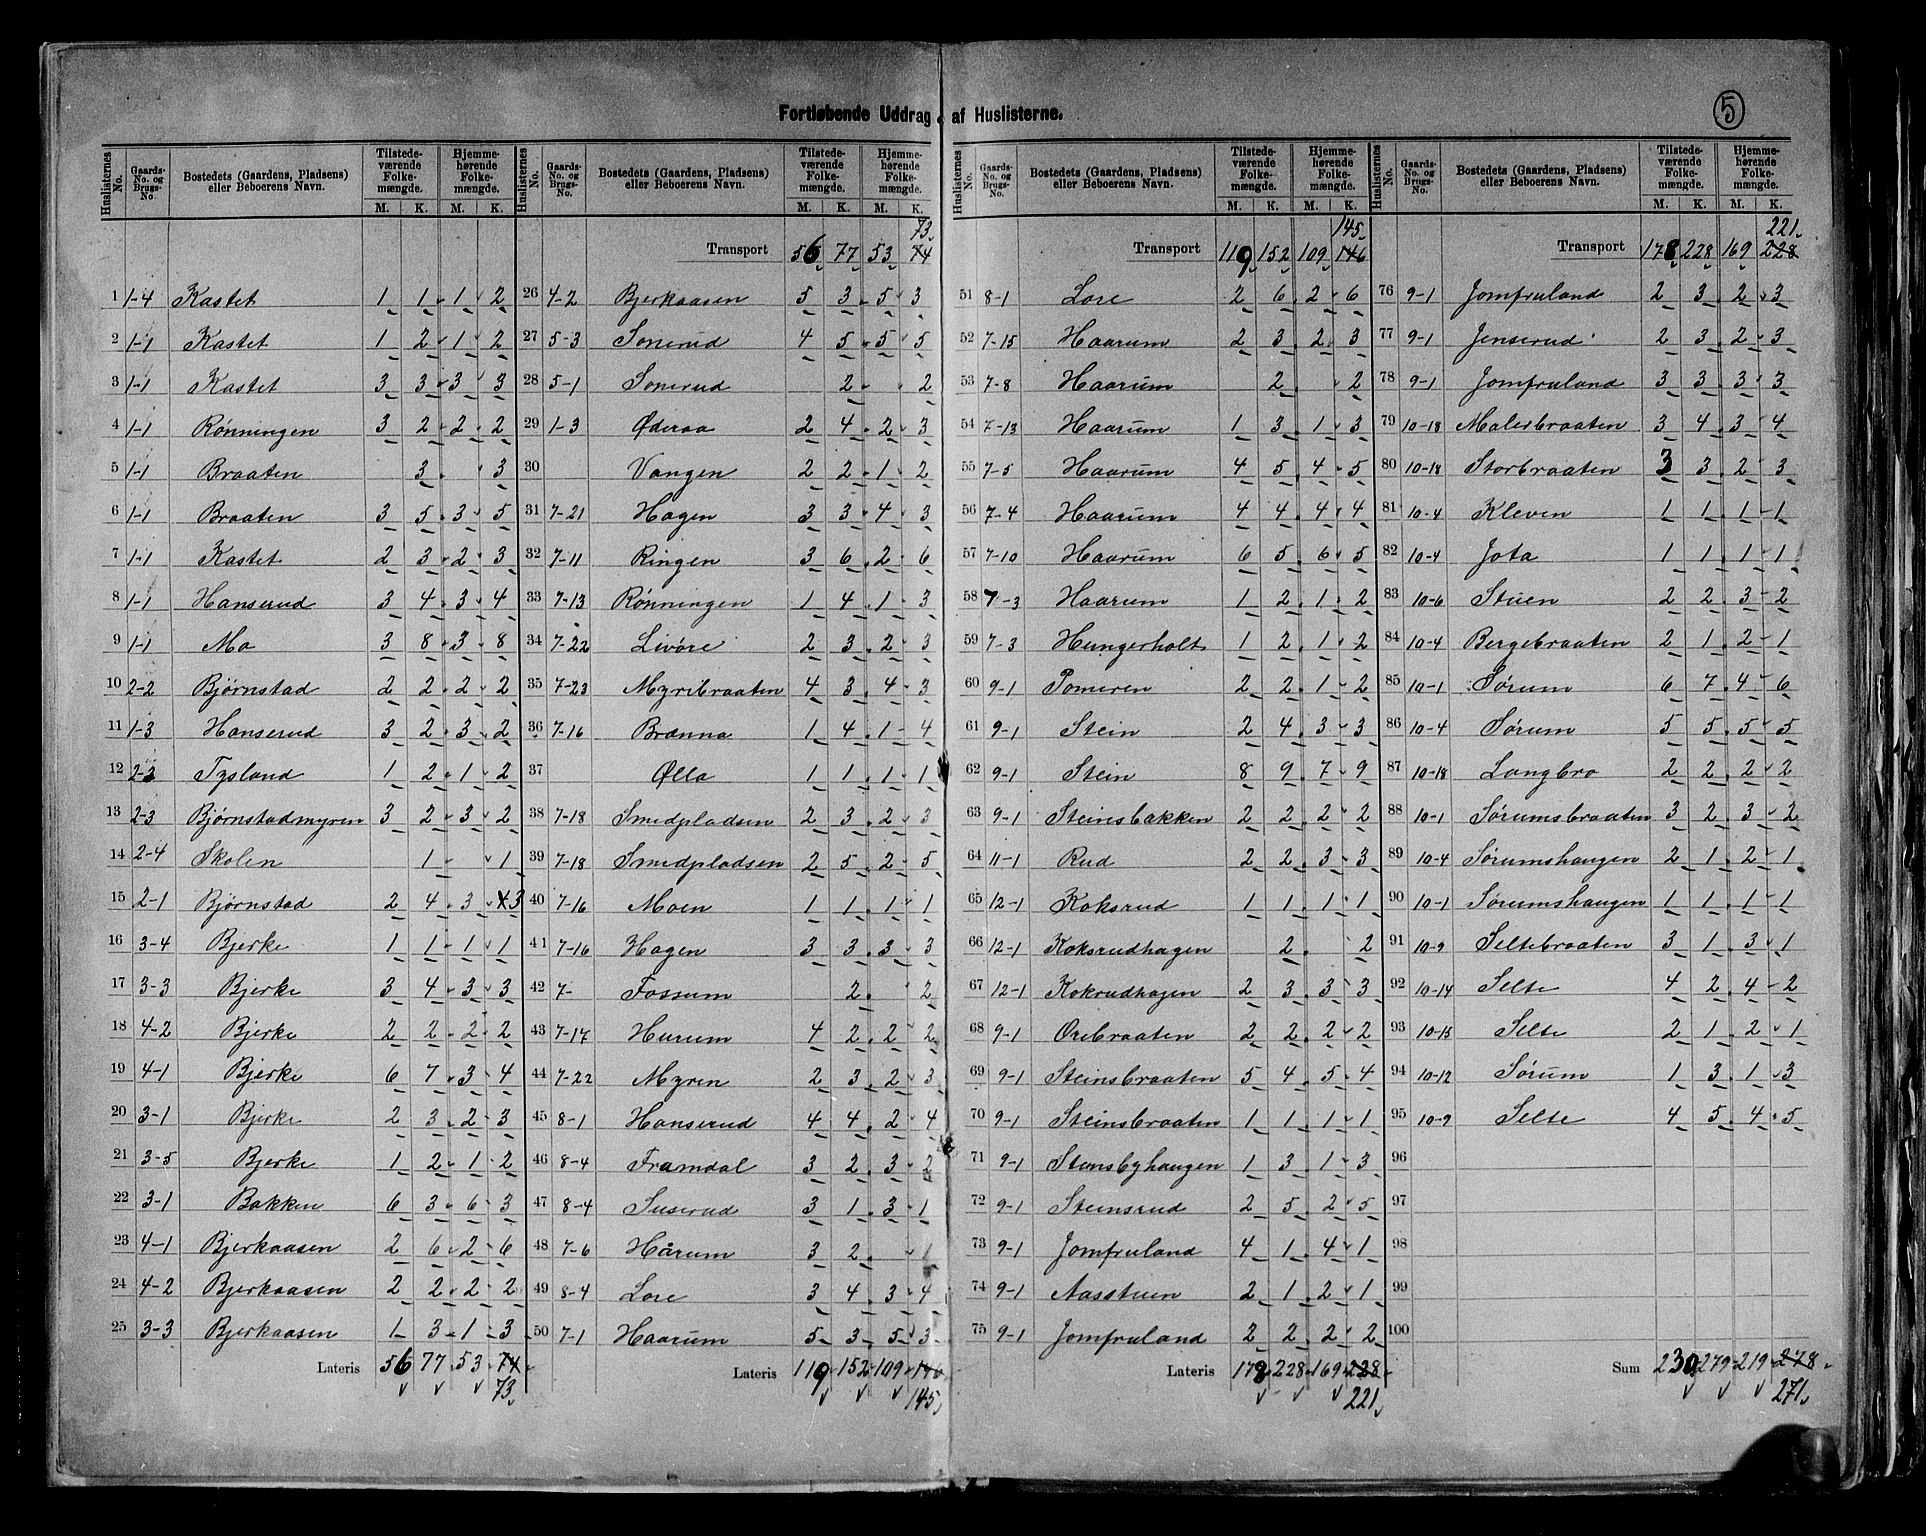 Fortløbende Uddrag af Huslisterne.
5
Huslisternes No. Gaards-No. og Brugs-No. Bostedets (Gaardens, Pladsens) eller Beboerens Navn. Tilstedeværende Folkemængde. M. K. Hjemmehørende Folkemængde. M. K.
1 1-4 Kastet 1 1 1 2
2 1-1 Kastet 1 2 1 2
3 1-1 Kastet 3 3 3 3
4 1-1 Rønningen 3 2 2 2
5 1-1 Braaten 3 3
6 1-1 Braaten 3 5 3 5
7 1-1 Kastet 2 3 2 3
8 1-1 Hanserud 3 4 3 4
9 1-1 Mo 3 8 3 8
10 2-2 Bjørnstad 2 2 2 2
11 1-3 Hanserud 3 2 3 2
12 2-3 Tysland 1 2 1 2
13 2-3 Bjørnstadmyren 3 2 3 2
14 2-4 Skolen 1 1
15 2-1 Bjørnstad 2 4 3 4 3
16 3-4 Bjerke 1 1 1 1
17 3-3 Bjerke 3 4 3 3
18 4-2 Bjerke 2 2 2 2
19 4-1 Bjerke 6 7 3 4
20 3-1 Bjerke 2 3 2 3
21 3-5 Bjerke 1 2 1 2
22 3-1 Bakken 6 3 6 3
23 4-1 Bjerkaasen 2 6 2 6
24 4-2 Bjerkaasen 2 2 2 2
25 3-3 Bjerkaasen 1 3 1 3
Lateris 56 77 53 74
73
Huslisternes No. Gaards-No. og Brugs-No. Bostedets (Gaardens, Pladsens) eller Beboerens Navn. Tilstedeværende Folkemængde. M. K. Hjemmehørende Folkemængde. M. K.
73
Transport 56 77 53 74
26 4-2 Bjerkaasen 5 3 5 3
27 5-3 Sonerud 4 5 5 5
28 5-1 Sonerud 2 2
29 1-3 Øderaa 2 4 2 3
30 Vangen 2 2 1 2
31 7-21 Hagen 3 3 4 3
32 7-11 Ringen 3 6 2 6
33 7-13 Rønningen 1 4 1 3
34 7-22 Livøre 2 3 2 3
35 7-23 Myribraaten 4 3 4 3
36 7-16 Brænna 1 4 1 4
37 Ølla 1 1 1 1
38 7-18 Smedpladsen 2 3 2 3
39 7-18 Smedpladsen 2 5 2 5
40 7-16 Moen 1 1 1 1
41 7-16 Hagen 3 3 3 3
42 7- Fossum 2 2
43 7-17 Hurum 4 2 2 2
44 7-22 Myren 2 3 2 3
45 8-1 Hanserud 4 4 2 4
46 8-4 Framdal 3 2 3 2
47 8-4 Suserud 3 1 3 1
48 7-6 Hårum 3 2 1
49 8-4 Lore 3 4 3 4
50 7-1 Haarum 5 3 5 3
Lateris 119 152 109 146
145
Huslisternes No. Gaards-No. og Brugs-No. Bostedets (Gaardens, Pladsens) eller Beboerens Navn. Tilstedeværende Folkemængde. M. K. Hjemmehørende Folkemængde. M. K.
145
Transport 119 152 109 146
51 8-1 Lore 2 6 2 6
52 7-15 Haarum 2 3 2 3
53 7-8 Haarum 2 2
54 7-13 Haarum 1 3 1 3
55 7-5 Haarum 4 5 4 5
56 7-4 Haarum 4 4 4 4
57 7-10 Haarum 6 5 6 5
58 7-3 Haarum 1 2 1 2
59 7-3 Hungerholt 1 2 1 2
60 9-1 Pomeren 2 2 1 2
61 9-1 Stein 2 4 3 3
62 9-1 Stein 8 9 7 9
63 9-1 Steinsbakken 2 2 2 2
64 11-1 Rud 2 2 3 3
65 12-1 Koksrud 1 1 1 1
66 12-1 Koksrudhagen 2 2
67 12-1 Kokrudhagen 2 3 3 3
68 9-1 Orebraaten 2 2 2 2
69 9-1 Steinsbraaten 5 4 5 4
70 9-1 Steinsbraaten 1 1 1 1
71 9-1 Stensbyhaugen 1 3 1 3
72 9-1 Steinsrud 2 5 2 5
73 9-1 Jomfruland 4 1 4 1
74 9-1 Aasstuen 2 1 2 1
75 9-1 Jomfruland 2 2 2 2
Lateris 178 228 169 228
221
Huslisternes No. Gaards-No. og Brugs-No. Bostedets (Gaardens, Pladsens) eller Beboerens Navn. Tilstedeværende Folkemængde. M. K. Hjemmehørende Folkemængde. M. K.
221
Transport 178 228 169 228
76 9-1 Jomfruland 2 3 2 3
77 9-1 Jenserud 2 3 2 3
78 9-1 Jomfruland 3 3 3 3
79 10-18 Malerbraaten 3 4 3 4
80 10-18 Storbraaten 3 3 2 3
81 10-4 Kleven 1 1 1 1
82 10-4 Jota 1 1 1 1
83 10-6 Stuen 2 2 3 2
84 10-4 Bergebraaten 2 1 2 1
85 10-1 Sørum 6 7 4 6
86 10-4 Sørum 5 5 5 5
87 10-18 Langbro 2 2 2 2
88 10-1 Sørumsbraaten 3 2 3 2
89 10-4 Sørumshaugen 2 1 2 1
90 10-1 Sørumshaugen 1 1 1 1
91 10-9 Seltebraaten 3 1 3 1
92 10-14 Selte 4 2 4 2
93 10-15 Selte 2 1 2 1
94 10-12 Sørum 1 3 1 3
95 10-9 Selte 4 5 4 5
96
97
98
99
100
Sum 230 279 219 278
271